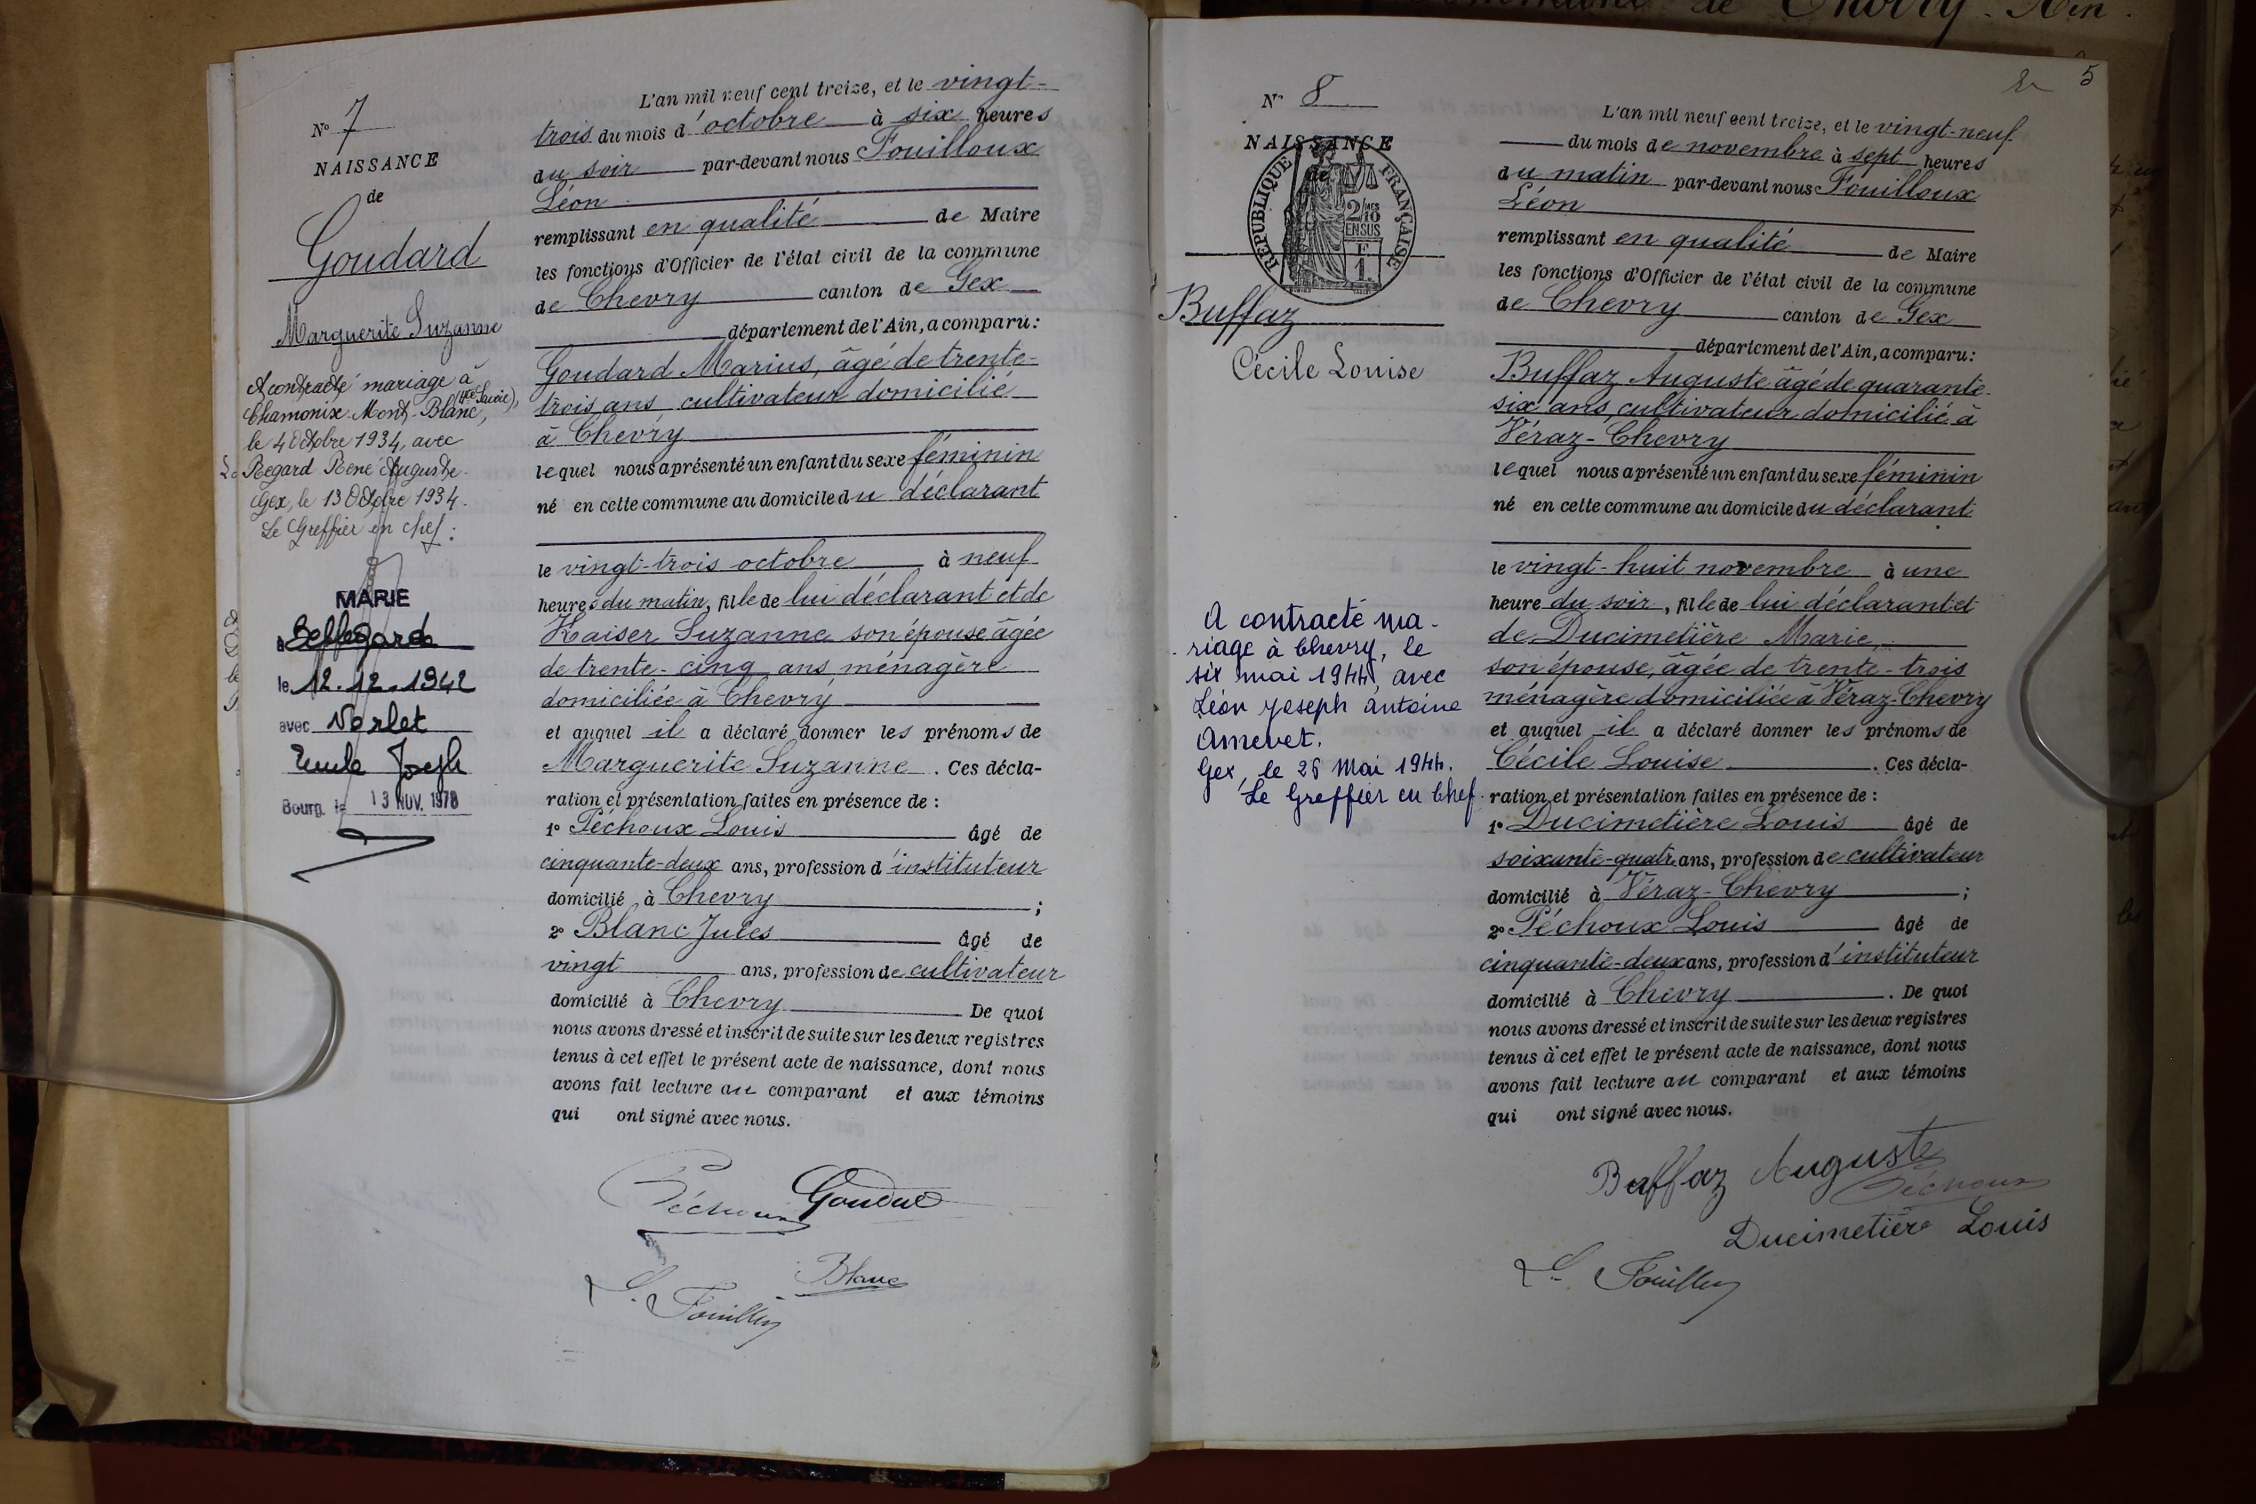 Nº 7
NAISSANCE
de
Goudard
Marguerite Suzanne
A contracté mariage à
Chamonix-Mont-Blanc, (Hte Savoie),
le 4 Octobre 1934, avec
Regard René Auguste.
Gex, le 13 Octobre 1934.
Le Greffier en chef :
MARIE
à Bellegarde
le 12.12.1942
avec Verlet
Emile Joseph
Bourg, le 13 NOV. 1978
L'an mil neuf cent treize, et le vingt-
trois du mois d'octobre à six heures
du soir par-devant nous Fouilloux
Léon
remplissant en qualité de Maire
les fonctions d'Officier de l'état civil de la commune
de Chevry canton de Gex
département de l'Ain, a comparu :
Goudard Marius, âgé de trente-
trois ans, cultivateur domicilié
à Chevry
lequel nous a présenté un enfant du sexe féminin
né en cette commune au domicile du déclarant
le vingt-trois octobre à neuf
heures du matin, fille de lui déclarant et de
Kaiser Suzanne son épouse âgée
de trente-cinq ans, ménagère
domiciliée à Chevry
et auquel il a déclaré donner les prénoms de
Marguerite Suzanne. Ces décla-
ration et présentation faites en présence de :
1º Péchoux Louis âgé de
cinquante-deux ans, profession d'instituteur
domicilié à Chevry ;
2º Blanc Jules âgé de
vingt ans, profession de cultivateur
domicilié à Chevry De quoi
nous avons dressé et inscrit de suite sur les deux registres
tenus à cet effet le présent acte de naissance, dont nous
avons fait lecture au comparant et aux témoins
qui ont signé avec nous.
Péchoux Goudard
Blanc
L. Fouilloux
5
Nº 8
NAISSANCE
de
RÉPUBLIQUE FRANÇAISE
2/10 EN SUS
F
1.
Buffaz
Cécile Louise
A contracté ma-
riage à Chevry, le
six mai 1944, avec
Léon Joseph Antoine
Amevet.
Gex, le 25 Mai 1944.
Le Greffier en Chef.
L'an mil neuf cent treize, et le vingt-neuf
du mois de novembre à sept heures
du matin par-devant nous Fouilloux
Léon
remplissant en qualité de Maire
les fonctions d'Officier de l'état civil de la commune
de Chevry canton de Gex
département de l'Ain, a comparu :
Buffaz Auguste âgé de quarante-
six ans, cultivateur domicilié à
Véraz-Chevry
lequel nous a présenté un enfant du sexe féminin
né en cette commune au domicile du déclarant
le vingt-huit novembre à une
heure du soir, fille de lui déclarant et
de Ducimetière Marie,
son épouse, âgée de trente-trois
ménagère domiciliée à Véraz-Chevry
et auquel il a déclaré donner les prénoms de
Cécile Louise. Ces décla-
ration et présentation faites en présence de :
1º Ducimetière Louis âgé de
soixante-quatre ans, profession de cultivateur
domicilié à Véraz-Chevry ;
2º Péchoux Louis âgé de
cinquante-deux ans, profession d'instituteur
domicilié à Chevry. De quoi
nous avons dressé et inscrit de suite sur les deux registres
tenus à cet effet le présent acte de naissance, dont nous
avons fait lecture au comparant et aux témoins
qui ont signé avec nous.
Buffaz Auguste
Péchoux
Ducimetière Louis
L. Fouilloux